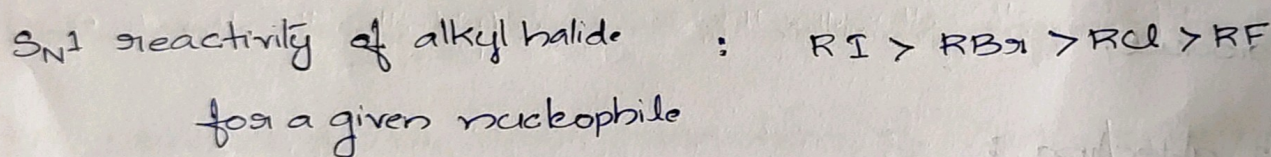 SN1 reactivity of alkyl halide : RI > RBr > RCl > RF
for a given nucleophile